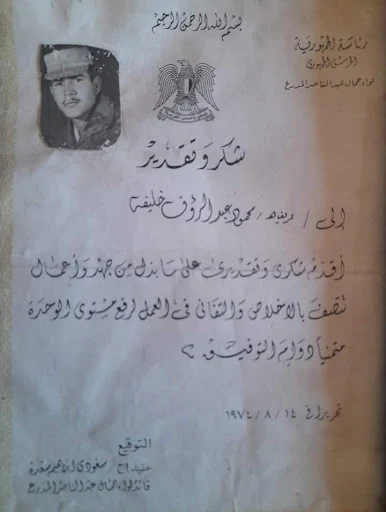 بسم الله الرحمن الرحيم
رئاسة الجمهورية
الحرس الجمهوري
لواء جمال عبد الناصر المدرع
شكر وتقدير
إلى / محمود عبد الرؤف خليفه
أقدم شكرى وتقديرى على ما بذل من جهد وأعمال
تتصف بالاخلاص والتفانى فى العمل لرفع مستوى الوحدة
متمنياً دوام التوفيق ،
تحريرا فى ١٤ / ٨ / ١٩٧٤
التوقيع
عقيد أ ح / سعودى ابراهيم سعدة
قائد لواء جمال عبد الناصر المدرع